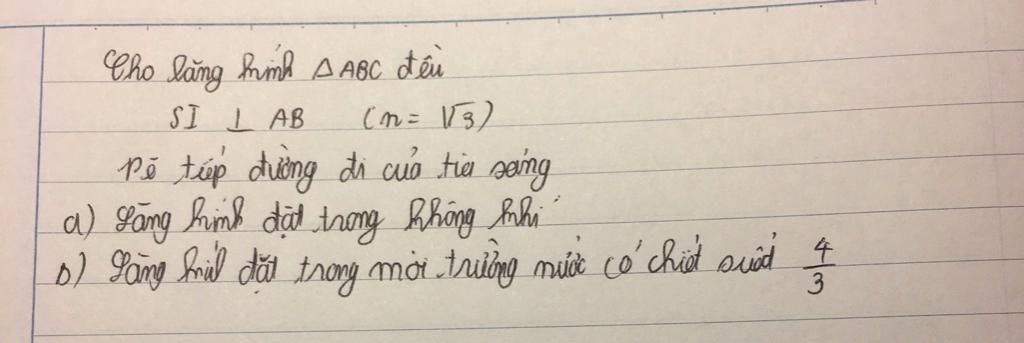 Cho lăng kính △ABC đều
SI ⊥ AB (n = √3)
Vẽ tiếp đường đi của tia sáng
a) Lăng kính đặt trong không khí
b) Lăng kính đặt trong môi trường nước có chiết suất 4/3